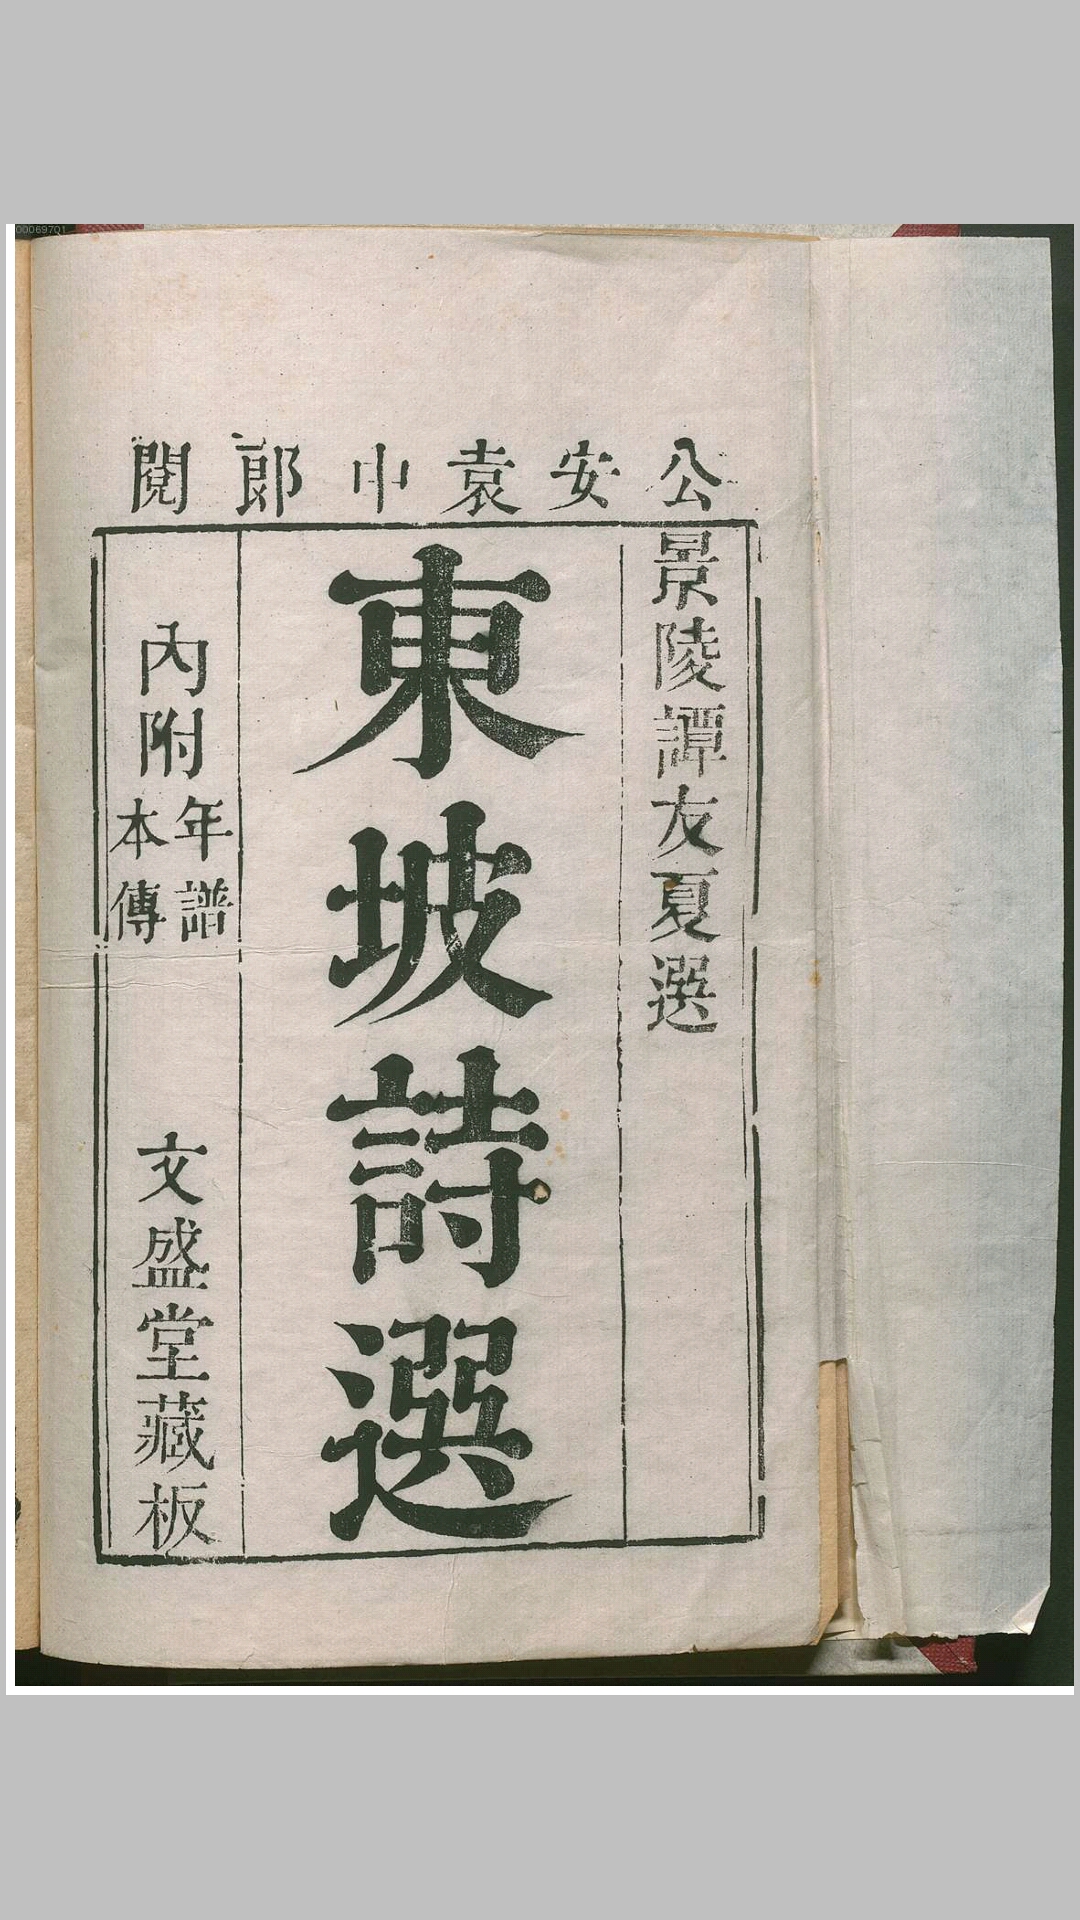 00069701
公安袁中郎閱
景陵譚友夏選
東坡詩選
內附
年譜
本傳
文盛堂藏板